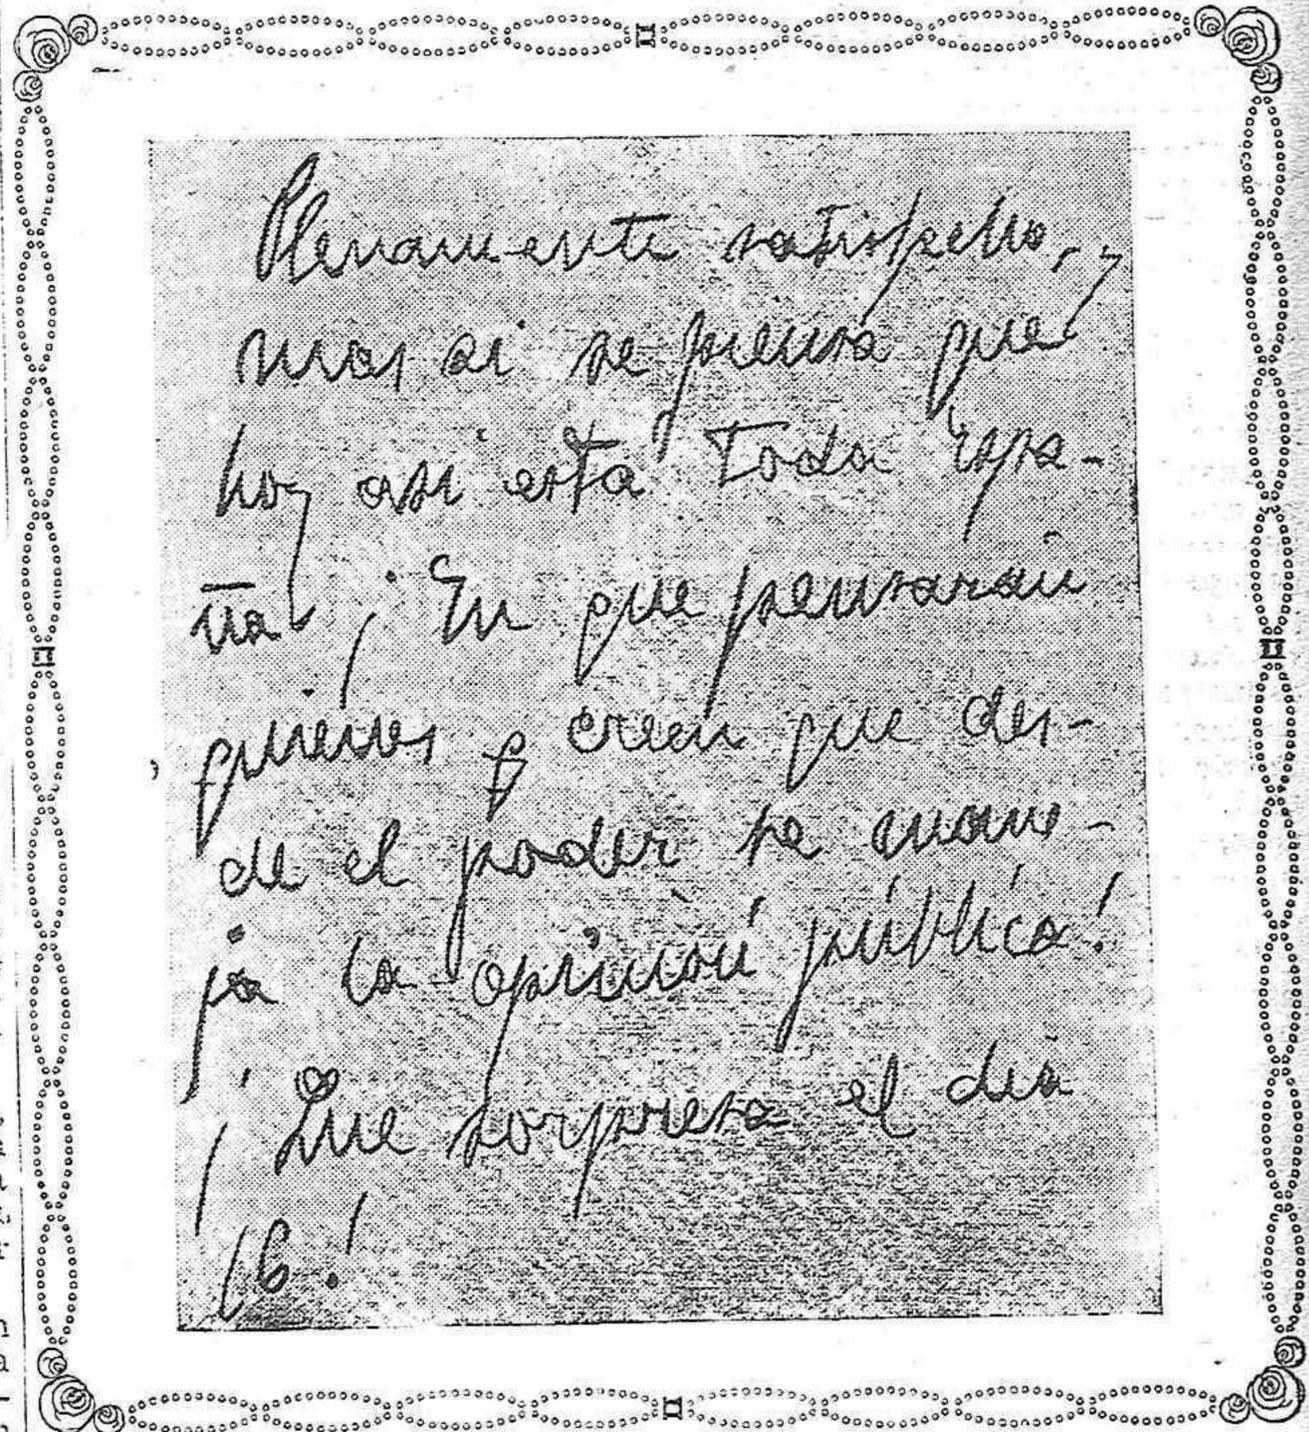 Plenamente satisfecho, y
mas si se piensa que
hoy asi esta toda Espa-
ña ¡En que pensaran
quienes creen que des-
de el poder se mane-
ja la opinión pública!
¡Que sorpresa el dia
16!